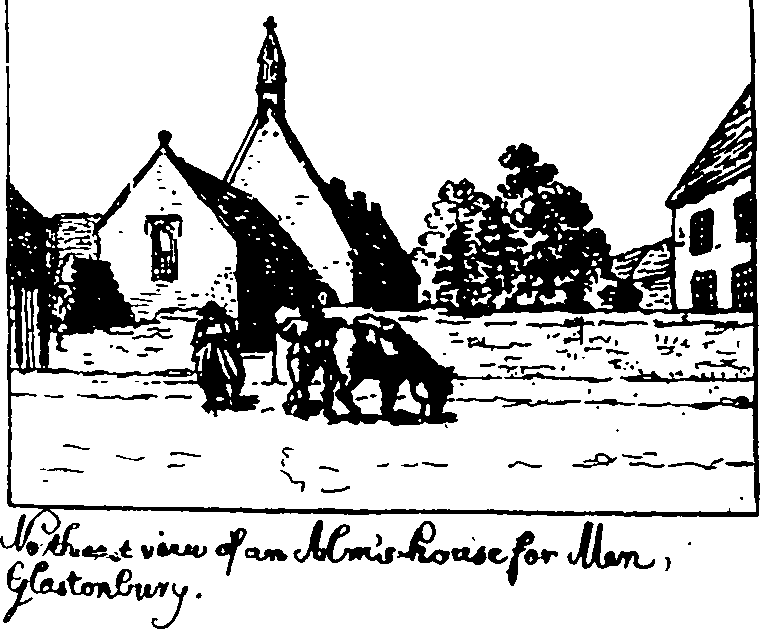 Northeast view of an Alm's-house for Men,
Glastonbury.